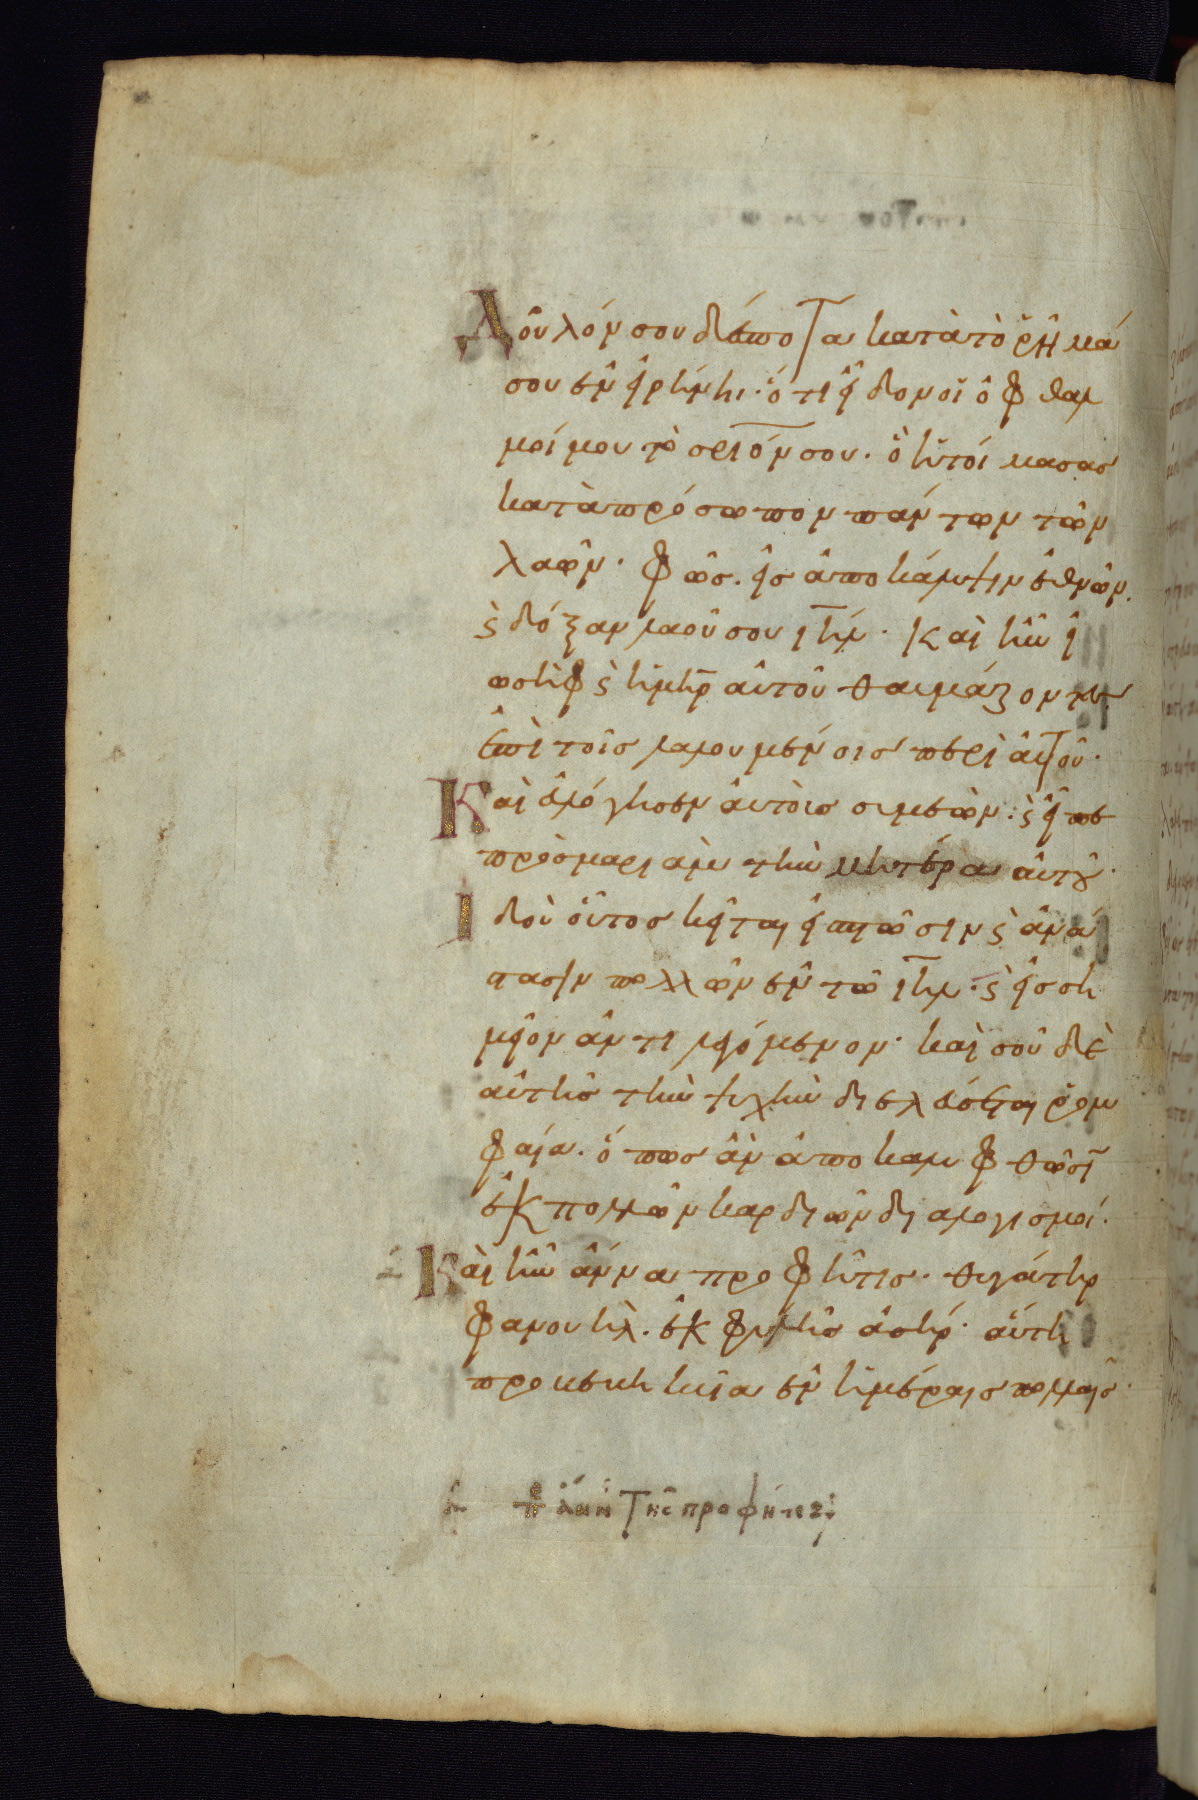 Δοῦλόν σου δέσποτα κατὰ τὸ ῥῆμά
σου ἐν εἰρήνη· ὅτι εἶδον οἱ ὀφθαλ
μοί μου τὸ σριόν σου· ὃ ἡτοίμασας
κατὰ πρόσωπον πάντων τῶν
λαῶν· φῶς εἰς ἀποκάλυψιν ἐθνῶν.
ϛ δόξαν λαοῦ σου ιηλ· Καὶ ἦν ἰ
ωσὴφ ϛ ἡ μηρ αὐτοῦ θαυμάζοντες
ἐπὶ τοῖς λαλουμένοις περὶ αὐτοῦ·
Καὶ εὐλόγησεν αὐτοὺς συμεών· ϛ εἶπε
πρὸς μαριὰμ τὴν μητέρα αὐτοῦ·
Ἰδοὺ οὗτος κεῖται εἰς πτῶσιν ϛ ἀνά
στασιν πολλῶν ἐν τῶ ιηλ· ϛ εἰς ση
μεῖον ἀντιλεγόμενον· καὶ σοῦ δὲ
αὐτῆς τὴν ψυχὴν διελεύσεται ῥομ
φαία· ὅπως ἂν ἀποκαλυφθῶσιν
ἐκ πολλῶν καρδιῶν διαλογισμοί·
Καὶ ἦν ἄννα προφῆτις· θυγάτηρ
φανουήλ· ἐκ φυλῆς ἀσήρ· αὕτη
προβεβηκυῖα ἐν ἡμέραις πολλαῖς·
πε ἄννης τῆς προφήτιδος